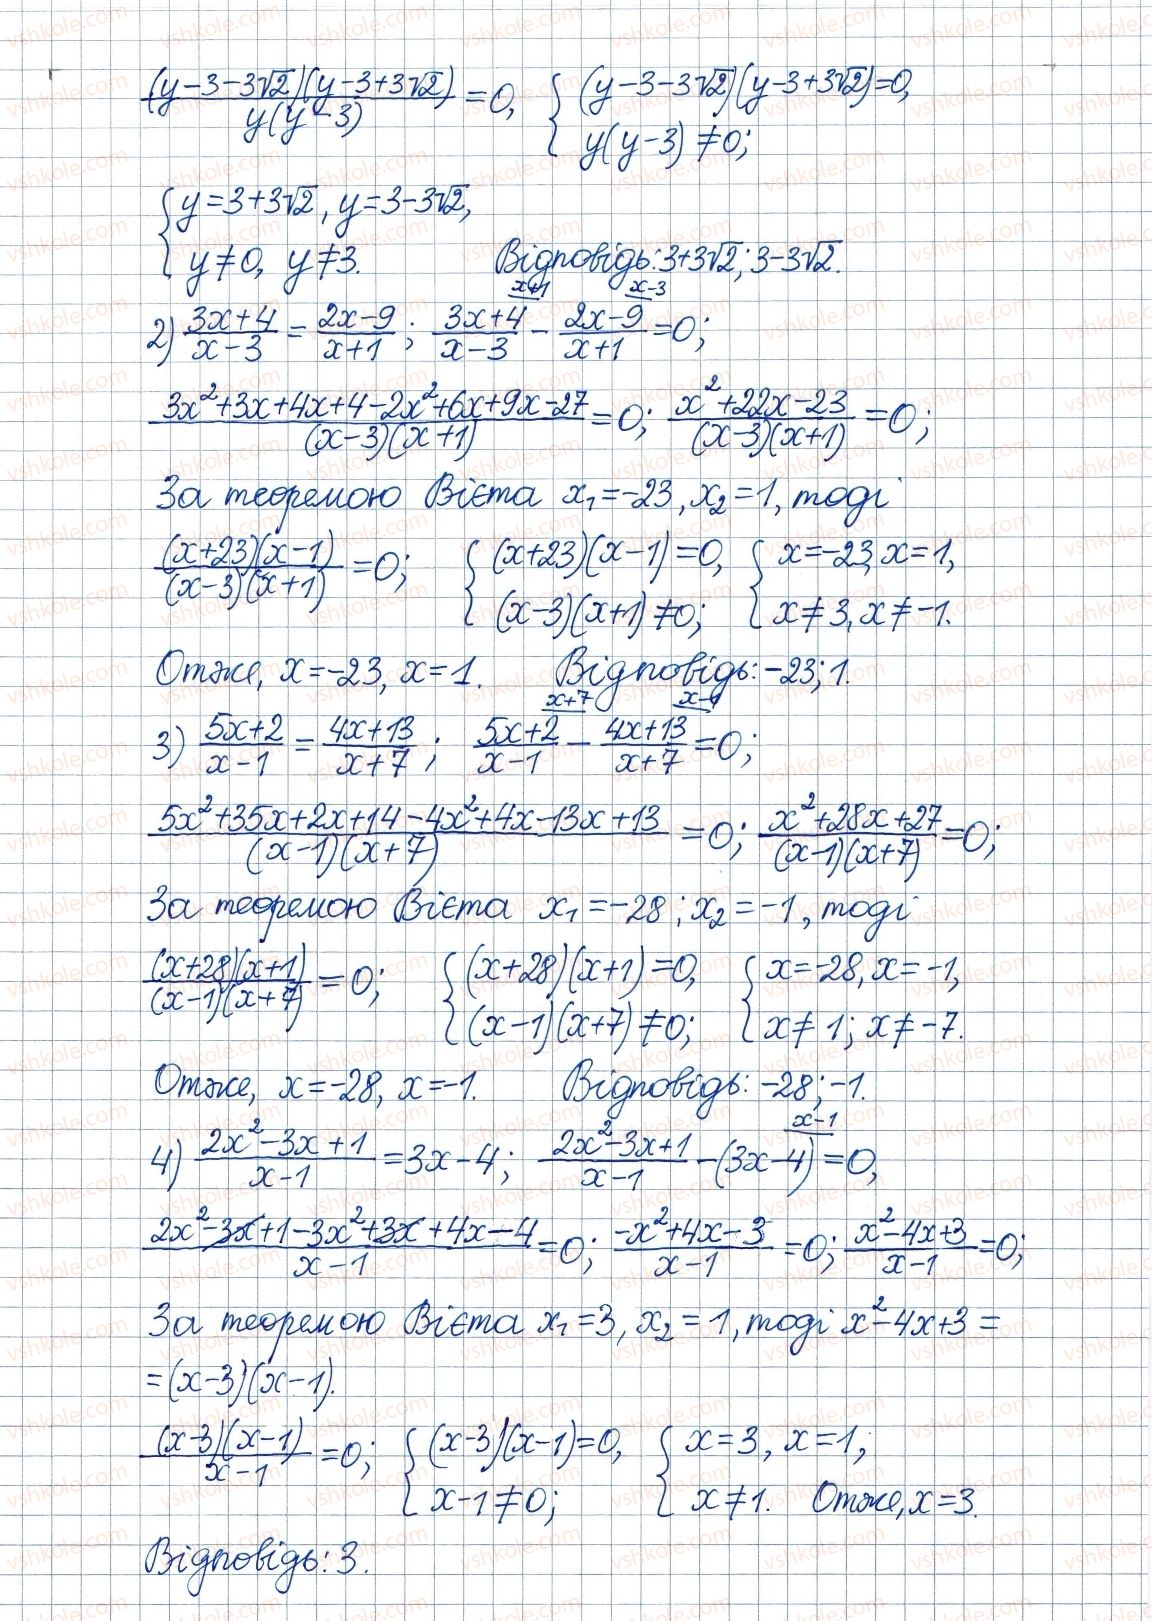 (y-3-3√2)(y-3+3√2)/y(y-3) = 0, { (y-3-3√2)(y-3+3√2)=0,
y(y-3) ≠ 0;
{ y=3+3√2, y=3-3√2,
y≠0, y≠3. Відповідь: 3+3√2; 3-3√2.
x+1 x-3
2) (3x+4)/(x-3) = (2x-9)/(x+1); (3x+4)/(x-3) - (2x-9)/(x+1) = 0;
(3x²+3x+4x+4-2x²+6x+9x-27)/((x-3)(x+1)) = 0; (x²+22x-23)/((x-3)(x+1)) = 0;
За теоремою Вієта x₁=-23, x₂=1, тоді
(x+23)(x-1)/((x-3)(x+1)) = 0; { (x+23)(x-1)=0, { x=-23, x=1,
(x-3)(x+1)≠0; x≠3, x≠-1.
Отже, x=-23, x=1. Відповідь: -23; 1.
x+7 x-1
3) (5x+2)/(x-1) = (4x+13)/(x+7); (5x+2)/(x-1) - (4x+13)/(x+7) = 0;
(5x²+35x+2x+14-4x²+4x-13x+13)/((x-1)(x+7)) = 0; (x²+28x+27)/((x-1)(x+7)) = 0;
За теоремою Вієта x₁=-28; x₂=-1, тоді
(x+28)(x+1)/((x-1)(x+7)) = 0; { (x+28)(x+1)=0, { x=-28, x=-1,
(x-1)(x+7)≠0; x≠1; x≠-7.
Отже, x=-28, x=-1. Відповідь: -28; -1.
x-1
4) (2x²-3x+1)/(x-1) = 3x-4; (2x²-3x+1)/(x-1) - (3x-4) = 0,
(2x²-3x+1-3x²+3x+4x-4)/(x-1) = 0; (-x²+4x-3)/(x-1) = 0; (x²-4x+3)/(x-1) = 0;
За теоремою Вієта x₁=3, x₂=1, тоді x²-4x+3 =
=(x-3)(x-1).
(x-3)(x-1)/(x-1) = 0; { (x-3)(x-1)=0, { x=3, x=1;
x-1≠0; x≠1. Отже, x=3.
Відповідь: 3.
vshkole.com